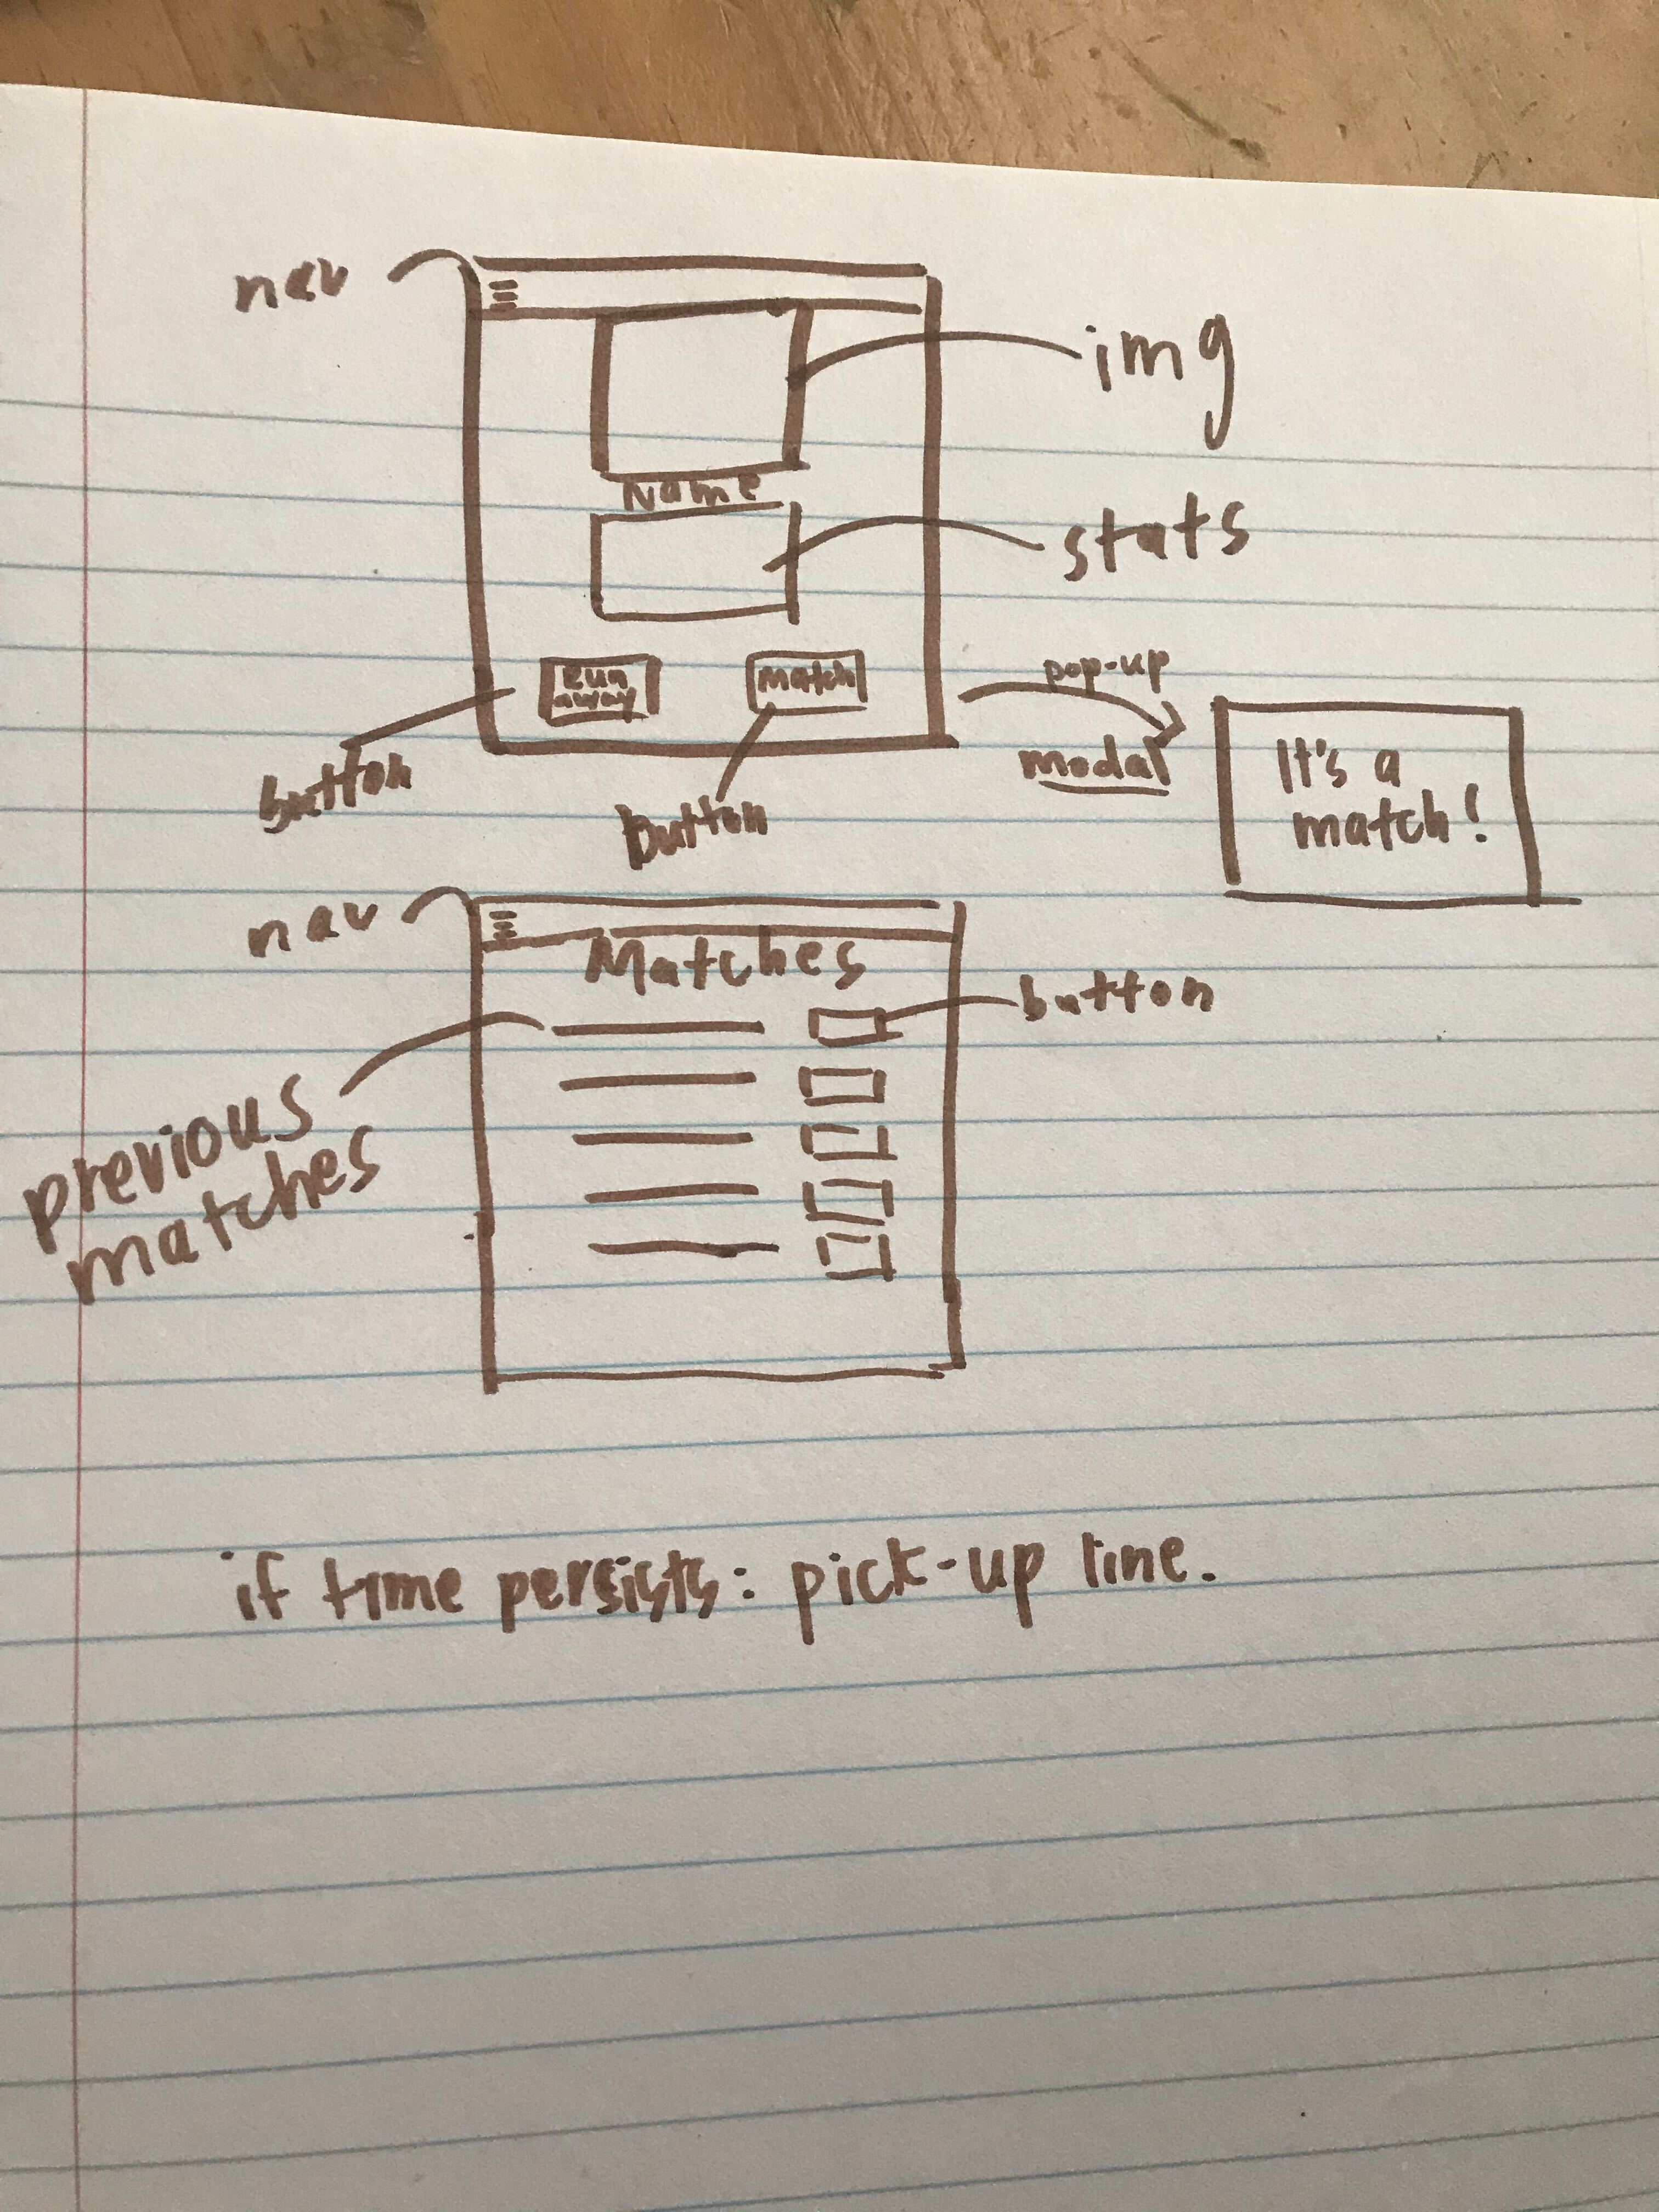 nav
img
Name
stats
Run
away
match
button
button
pop-up
modal
It's a
match!
nav
Matches
button
previous
matches
if time persists: pick-up line.